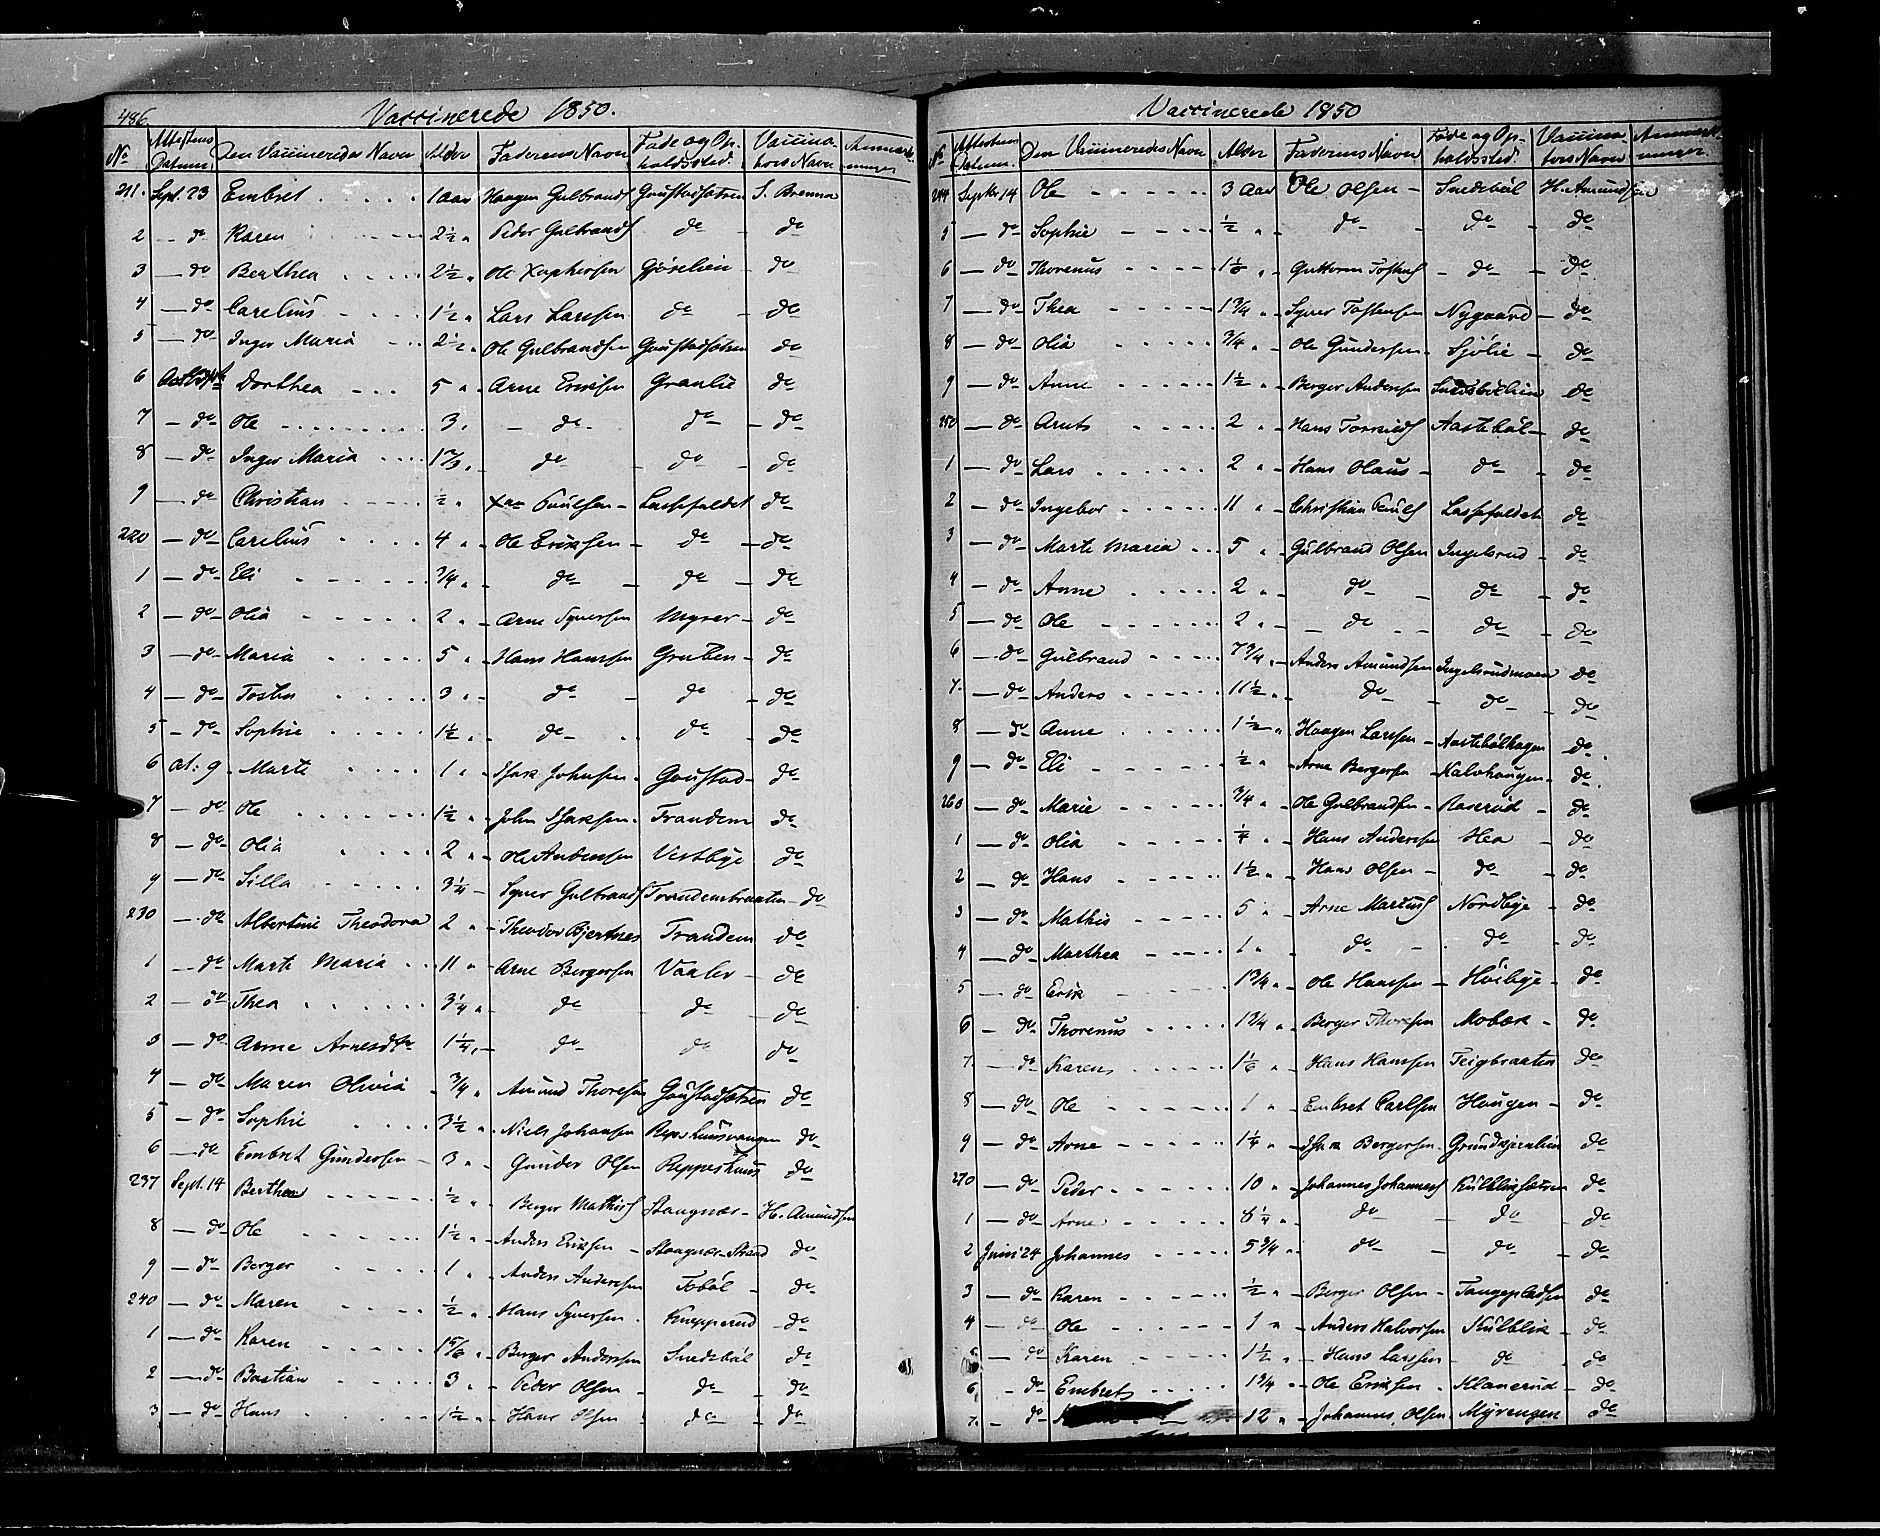 486.
Vaccinerede 1850.
No Attestens Datum. Den Vaccineredes Navn Alder Faderens Navn Føde og Opholdssted. Vaccinators Navn Anmærkninger
211. Sept. 23 Embret 1 Aar Haagen Gulbrands Goustadsætren S. Brenna
2 — do Karen 2½ " Peder Gulbrands do do
3 — do Berthea 2½ " Ole Gjøselien do
4 — do Carelius 1½ " Lars Larssen do do
5 — do Inger Maria 2½ " Ole Gulbrandsen Goustadsætren do
6 Dorthea 5 " Arne Eriksen Granlie do
7 — do Ole 3 " do do do
8 — do Inger Maria " do do do
9 — do Christian ½ " Poulsen Lassefaldet do
220 — do Carelius 4 " Ole Erikssen do do
1 — do Eli ¾ " do do do
2 — do Olia 2 " Arne Syverssen Myrer do
3 — do Maria 5 " Hans Hanssen Gruben do
4 — do Tosten 3 " do do do
5 — do Sophie 1½ " do do do
6 Oct: 9 Marte 1 " Isak Johnsen Goustad do
7 — do Ole 1½ " John Isaksen Trandem do
8 — do Olia 2 " Ole Andersen Vestbye do
9 — do Silla 3¼ Syver Gulbrands Trandemsbraaten do
230 — do Albertine Theodora 2 " Theodor Bjertnes Trandem do
1 — do Marte Maria 11 " Arne Bergersen Vaaler do
2 — do Thea 3¼ " do do do
3 — do Anne Arnesdtr 1¼ " do do do
4 — do Maren Olivia ¾ " Amund Thoresen Goustadsætren do
5 — do Sophie 3½ " Niels Johansen Repshuusvangen do
6 — do Embret Gundersen 3 " Gunder Olsen Reppeshuus do
237 Sept. 14 Berthea ½ " Berger Mathis Staugnæs H. Amundsen
8 — do Ole 1½ " Anders Eriksen Staugnæs-Strand do
9 — do Berger 1 " Anders Anderssen Tobøl do
240 — do Maren ½ " Hans Syverssen Knapperud do
1 — do Karen 1⅚ " Berger Anderssen Snedsbøl do
2 — do Bastian 3 " Peder Olsen do do
3 — do Hans 1½ " Hans Olsen do do
Vaccinerede 1850
No Attestens Datum. Den Vaccineredes Navn Alder Faderens Navn Føde og Opholdssted. Vaccinators Navn Anmærkninger
244 Septb 14 Ole 3 Aar Ole Olsen Snedsbøl H. Amundsen
5 — do Sophie ½ " do do do
6 — do Thorenus " Guttorm Tostens do do
7 — do Thea 1¾ " Syver Tostensen Nygaard do
8 — do Olia ¾ " Ole Gundersen Sjølie do
9 — do Anne 1½ " Berger Anderssen Snedsbøllien do
250 — do Arnts 2 " Hans Aastebøl do
1 — do Lars 2 " Hans Olaus do do
2 — do Ingebor 11 " Christian Pouls Lassefaldet do
3 — do Marte Maria 5 " Gulbrand Olsen Ingelsrud do
4 — do Anne 2 " do do do
5 — do Ole 2 " do do do
6 — do Gulbrand 7¾ " Anders Amundsen Ingelsrudmoen do
7 — do Anders 11½ " do do do
8 — do Anne 1½ " Haagen Larssen Aastebølhagen do
9 — do Eli ½ " Arne Bergersen Kalvhaugen do
260 — do Marie ¾ " Ole Gulbrandsen Raserud do
1 — do Olia ¼ " Hans Anderssen Hea do
2 — do Hans 1½ " Hans Olsen do do
3 — do Mathis 5 " Arne Martins Nordbye do
4 — do Marthea 1 " do do do
5 — do Erik 1¾ " Ole Hanssen Høibye do
6 — do Thorenus 1¾ " Berger Thoresen Mobæk do
7 — do Karens 1⅙ " Hans Hanssen Teigbraaten do
8 — do Ole 1 " Embret Carlsen Haugen do
9 — do Arne 1¼ " Isak Bergersen do
270 — do Peder 10 " Johannes Johanness Kulbliksætren do
1 — do Arne 8¼ " do do do
2 Juni 24 Johannes 5¾ " do do do
3 — do Karen ½ " Berger Olsen Tangepladsen do
4 — do Ole 1 " Anders Halvorsen Kulblik do
5 — do Karen 1½ " Hans Larssen do do
6 — do Embret 1¾ " Ole Eriksen Klanerud do
7 — do 12 " Johannes Olsen Myrengen do